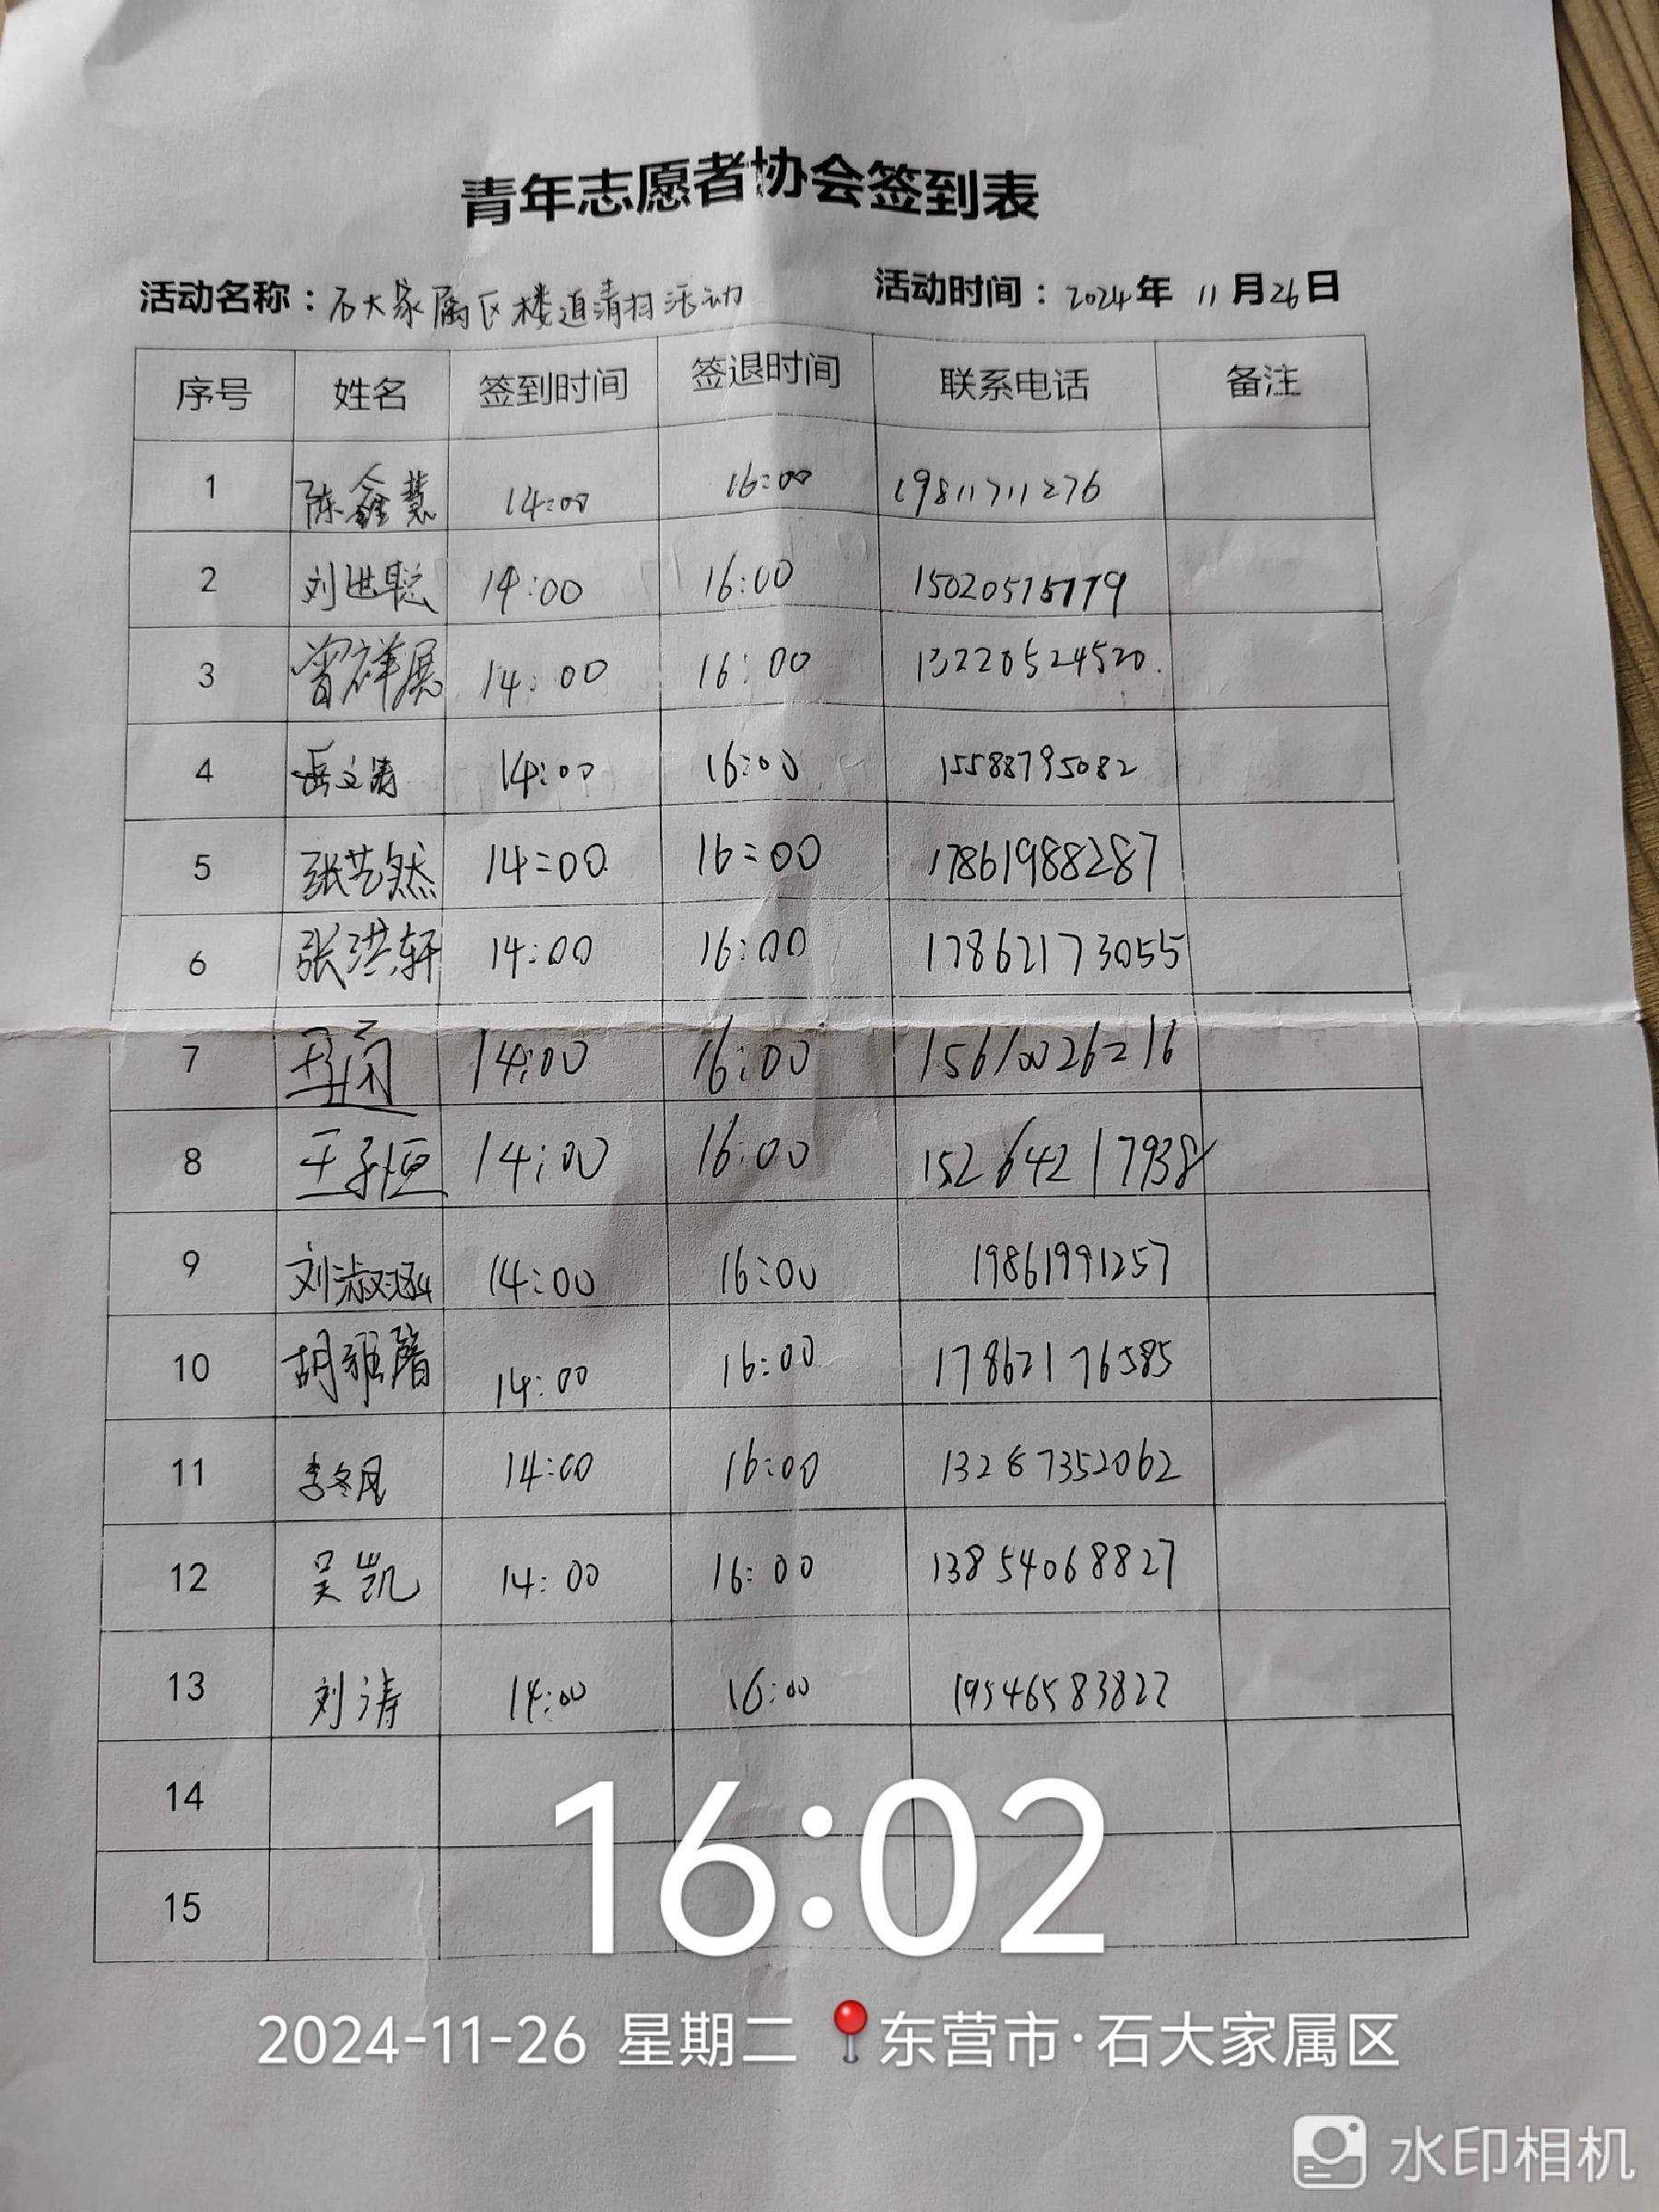 青年志愿者协会签到表
活动名称：石大家属区楼道清扫活动 活动时间：2024年 11月26日
序号 姓名 签到时间 签退时间 联系电话 备注
1 陈鑫慧 14:00 16:00 19811711276
2 刘进聪 14:00 16:00
3 曾祥展 14:00 16:00 13220524520
4 岳文涛 14:00 16:00 15588795082
5 张艺然 14:00 16:00 17861988287
6 张洪轩 14:00 16:00 17862173055
7 14:00 16:00 15610026216
8 王子恒 14:00 16:00 15264217938
9 刘淑涵 14:00 16:00 19861991257
10 胡雅 14:00 16:00 17862176585
11 李冬凤 14:00 16:00 13287352062
12 吴凯 14:00 16:00 13854068827
13 刘涛 14:00 16:00 19546583822
14
15
16:02
2024-11-26 星期二 东营市·石大家属区
水印相机